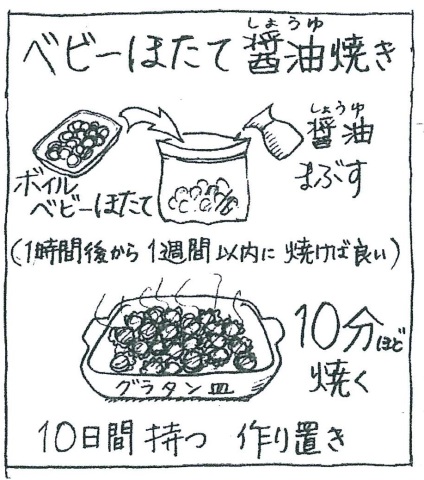 しょうゆ
ベビーほたて醤油焼き
しょうゆ
醤油
まぶす
ボイル
ベビーほたて
(1時間後から1週間以内に焼けば良い)
10分ほど
焼く
グラタン皿
10日間持つ 作り置き